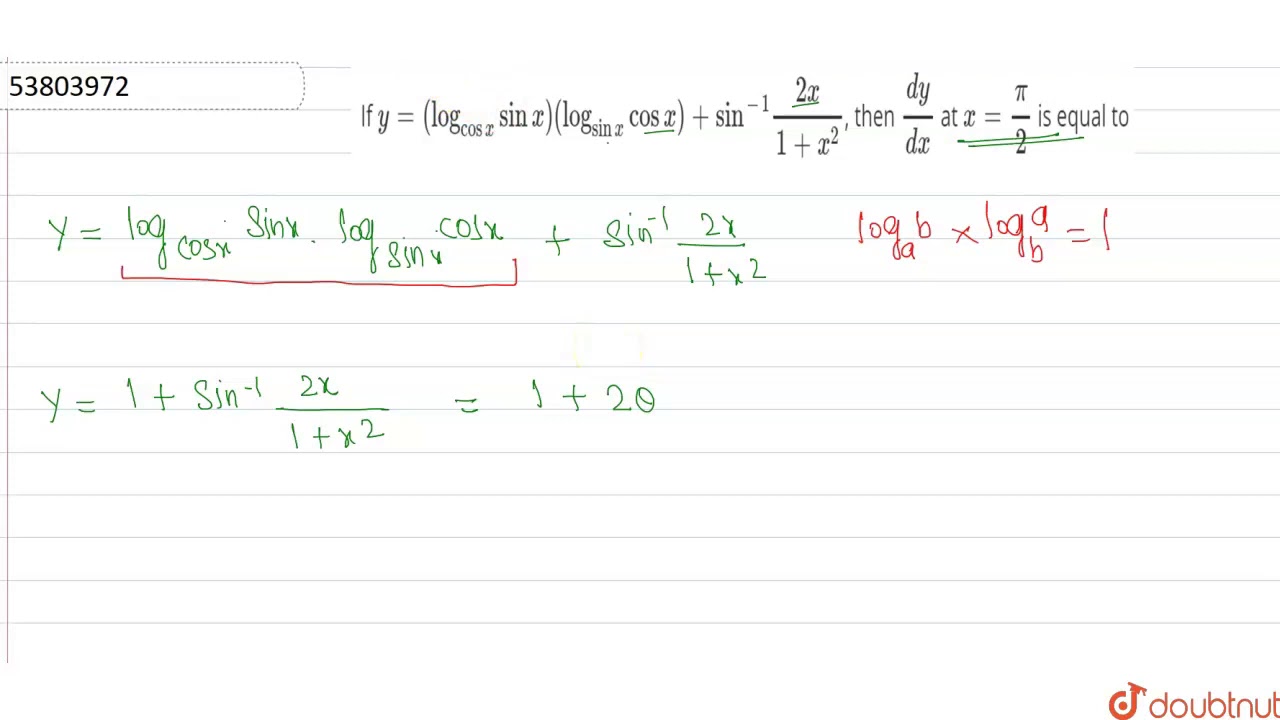 53803972
If y = (log_{cos x} sin x)(log_{sin x} cos x) + sin^{-1} \frac{2x}{1 + x^2}, then \frac{dy}{dx} at x = \frac{π}{2} is equal to
y = log_{cosx} sinx . log_{sinx} cosx + sin^{-1} \frac{2x}{1+x^2} log_a b × log_b a = 1
y = 1 + sin^{-1} \frac{2x}{1+x^2} = 1 + 2θ
doubtnut